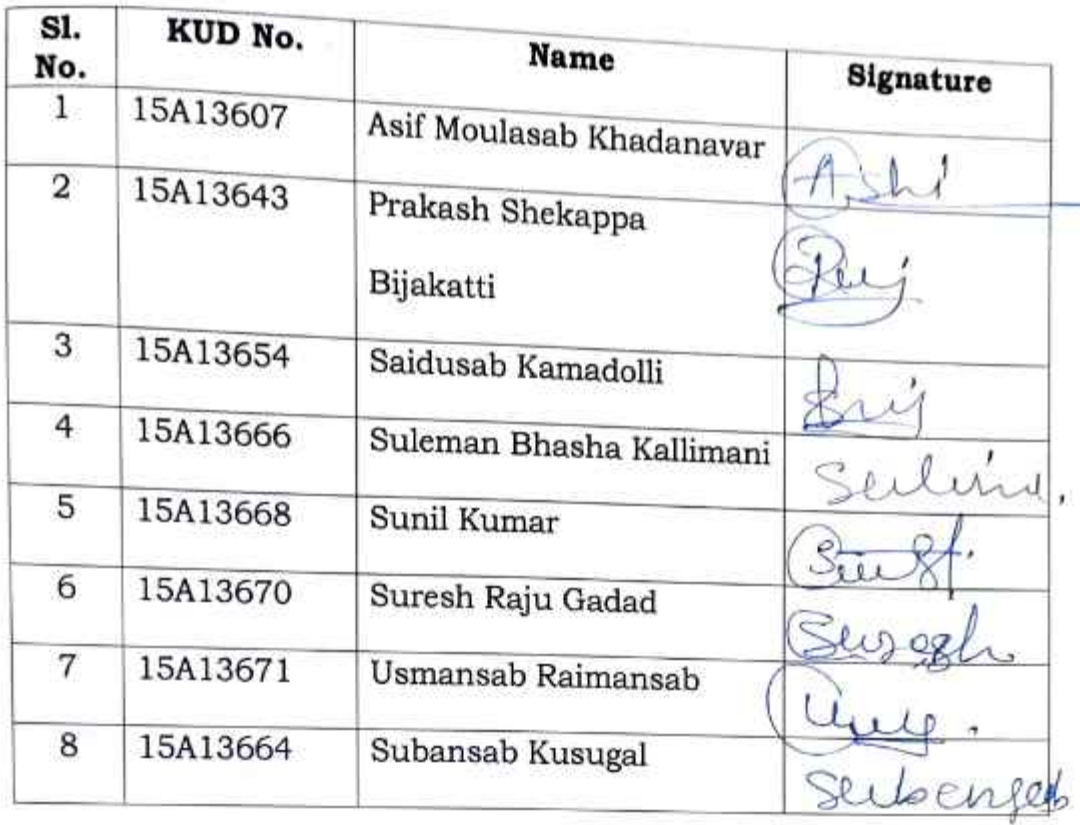 Sl. No. KUD No. Name Signature
1 15A13607 Asif Moulasab Khadanavar
2 15A13643 Prakash Shekappa
Bijakatti
3 15A13654 Saidusab Kamadolli
4 15A13666 Suleman Bhasha Kallimani
5 15A13668 Sunil Kumar
6 15A13670 Suresh Raju Gadad Suresh
7 15A13671 Usmansab Raimansab
8 15A13664 Subansab Kusugal